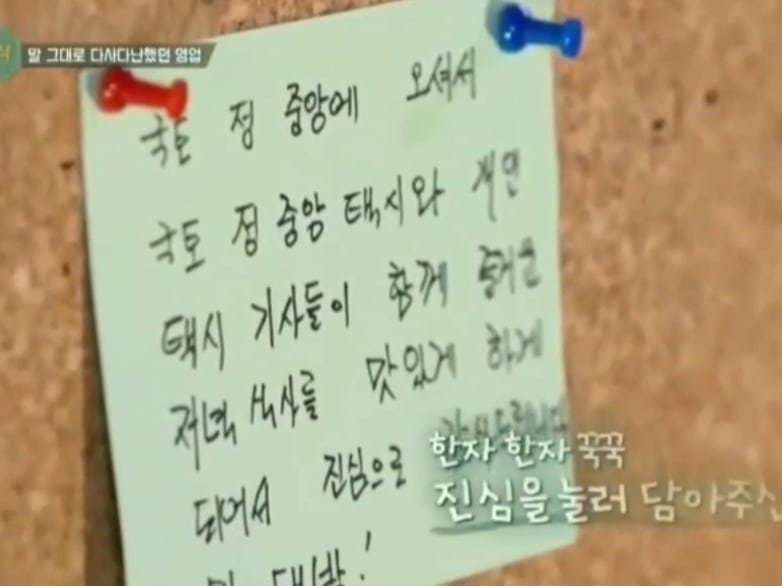 식
말 그대로 다사다난했던 영업
국토 정 중앙에 오셔서
국토 정 중앙 택시와 개인
택시 기사들이 함께 즐거운
저녁 식사를 맛있게 하게
되어서 진심으로 감사드립니다
대박!
한자 한자 꾹꾹
진심을 눌러 담아주신